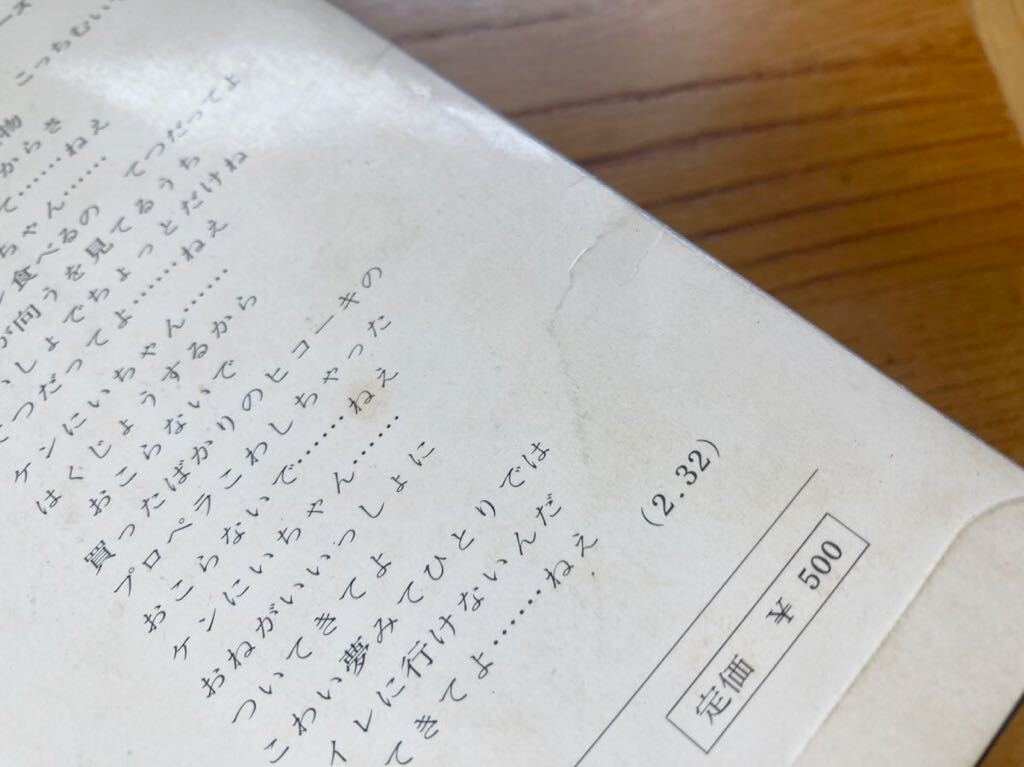 ーズ
こっちむい
物
からき
て……ねえ
ちゃん……
食べるの てつだってよ
が向うを見てるうち
いしょでちょっとだけね
つだってよ……ねえ
ケンにいちゃん……
はくじょうするから
おこらないで
買ったばかりのヒコーキの
プロペラこわしちゃった
おこらないで……ねえ
ケンにいちゃん……
おねがいいっしょに
ついてきてよ
こわい夢みてひとりでは
イレに行けないんだ
てきてよ……ねえ
(2.32)
定価 ¥500